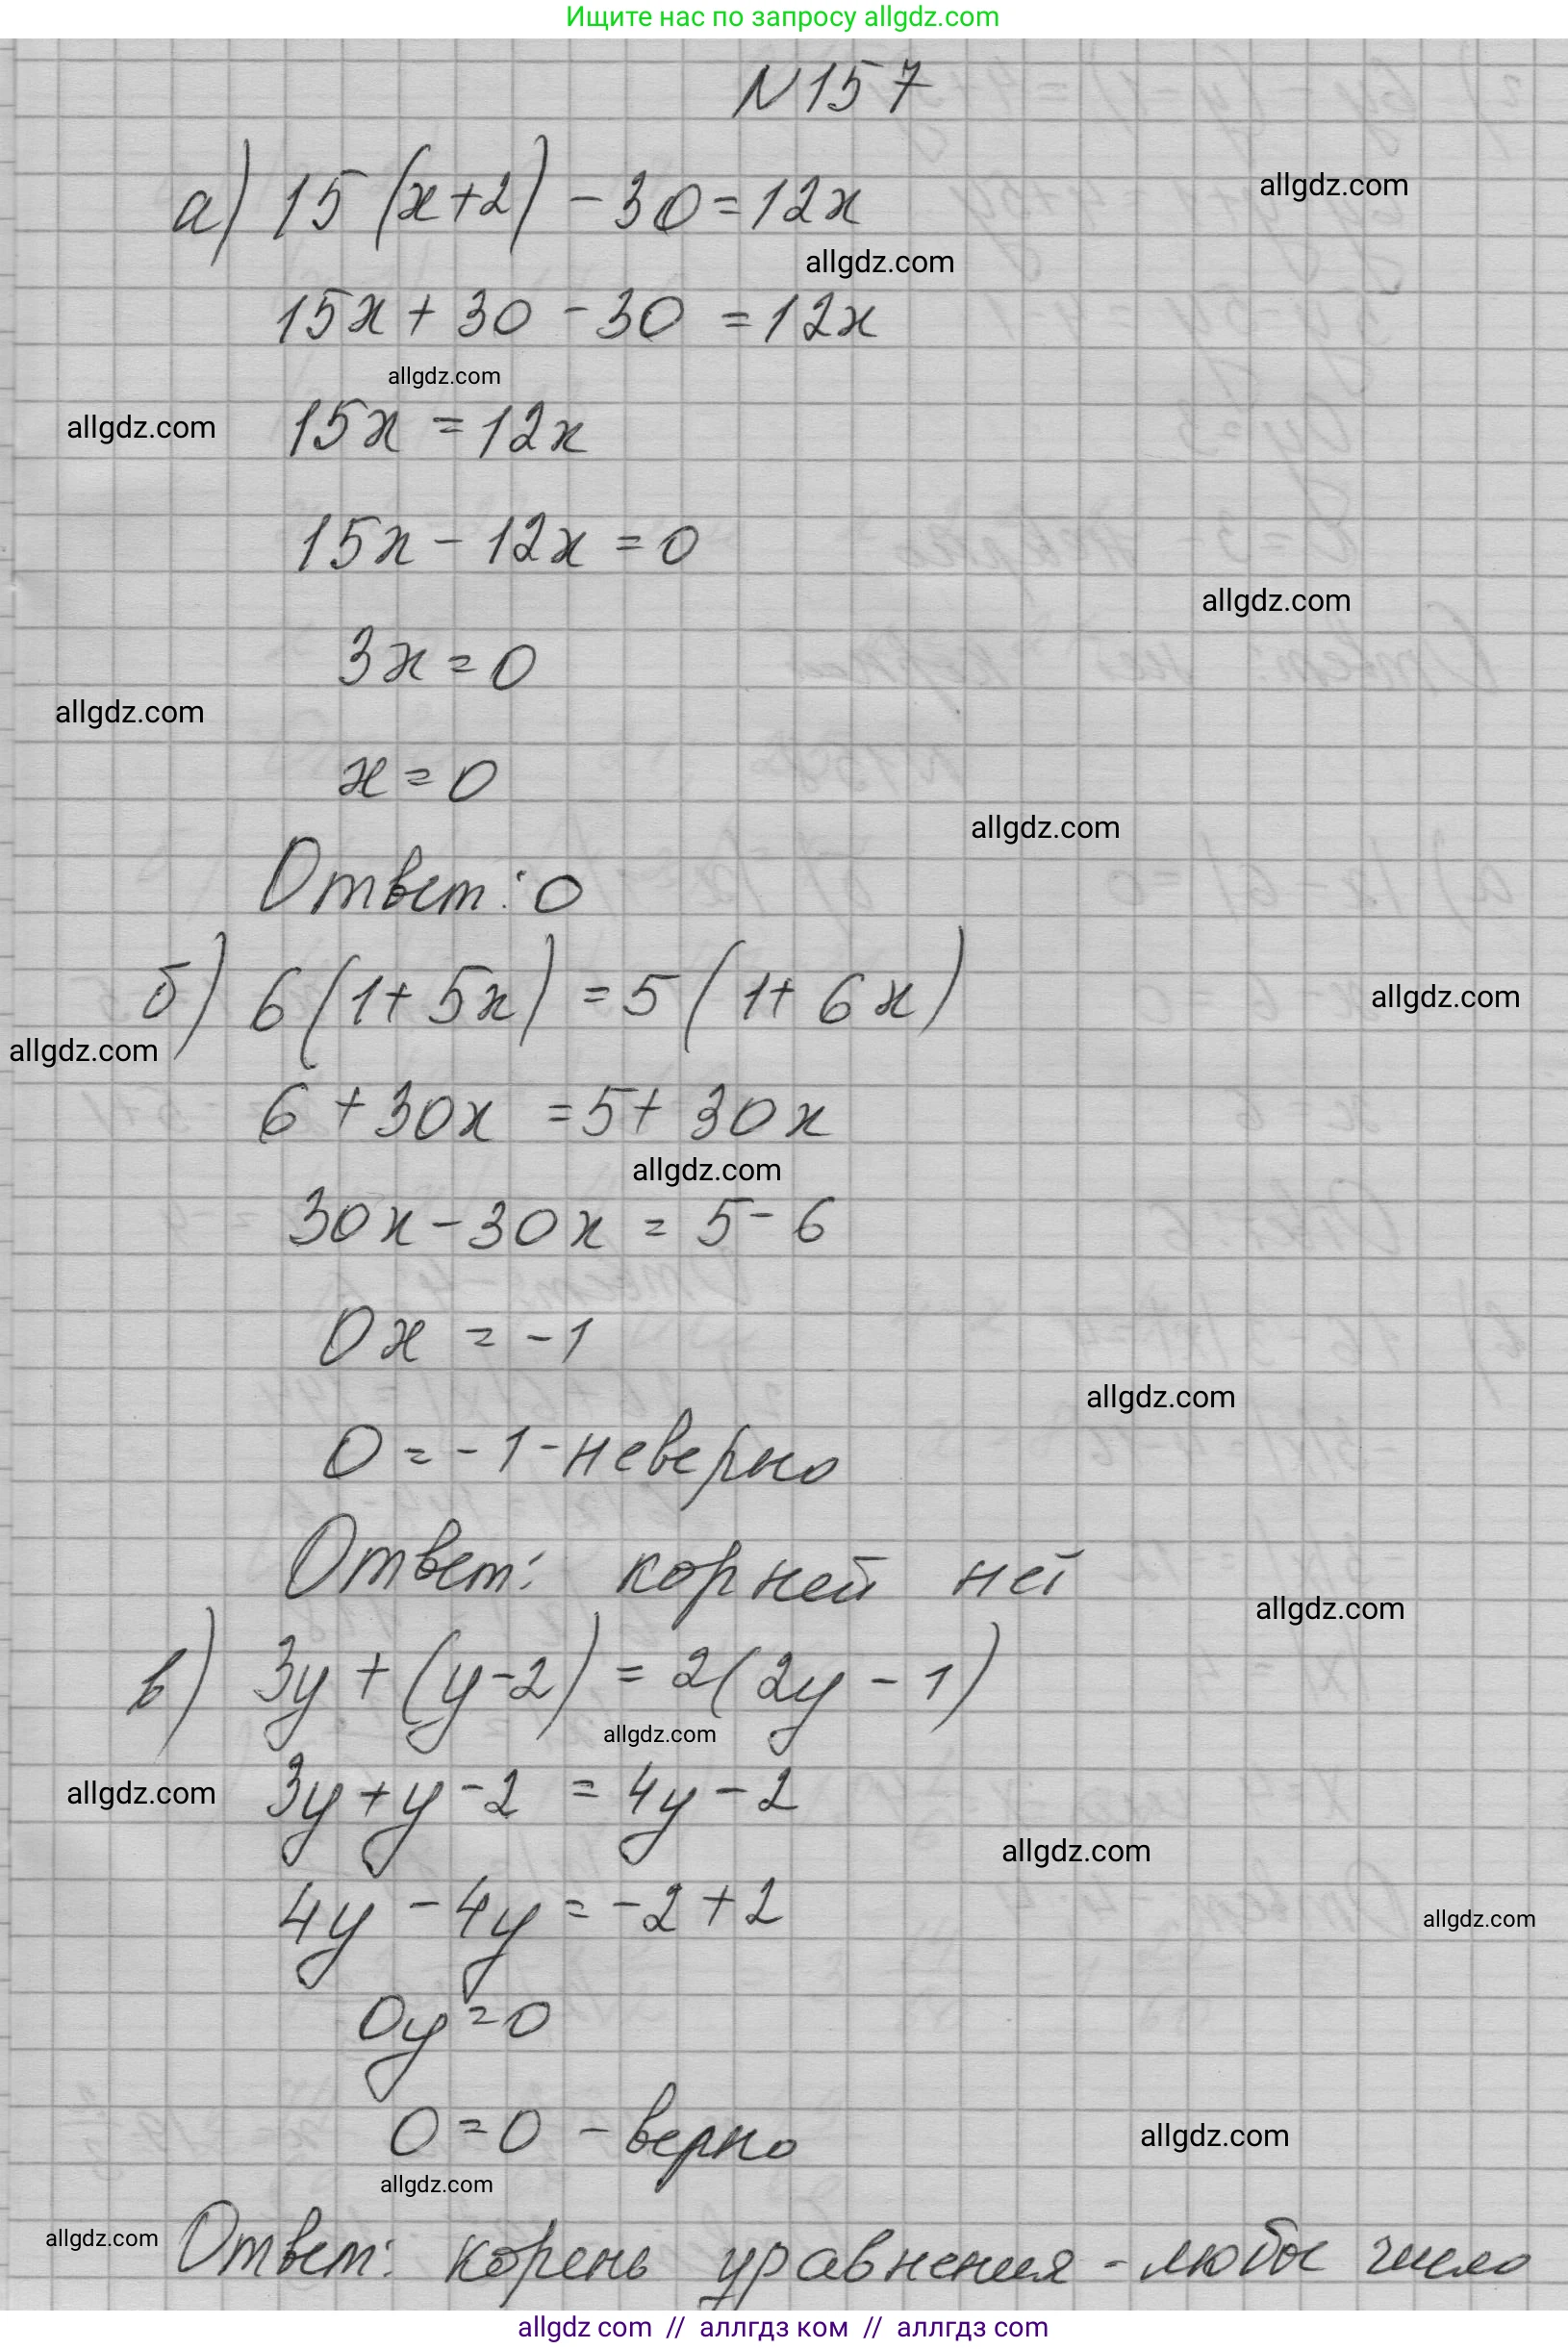 Ищите нас по запросу allgdz.com
N157
а) 15(x+2) - 30 = 12x
allgdz.com
allgdz.com
15x + 30 - 30 = 12x
allgdz.com
allgdz.com
15x = 12x
15x - 12x = 0
allgdz.com
3x = 0
allgdz.com
x = 0
allgdz.com
Ответ: 0
б) 6(1 + 5x) = 5(1 + 6x)
allgdz.com
allgdz.com
6 + 30x = 5 + 30x
allgdz.com
30x - 30x = 5 - 6
0x = -1
allgdz.com
0 = -1 - неверно
Ответ: корней нет
allgdz.com
в) 3y + (y-2) = 2(2y - 1)
allgdz.com
allgdz.com
3y + y - 2 = 4y - 2
allgdz.com
4y - 4y = -2 + 2
allgdz.com
0y = 0
0 = 0 - верно
allgdz.com
allgdz.com
allgdz.com
Ответ: корень уравнения - любое число
allgdz com // аллгдз ком // аллгдз com